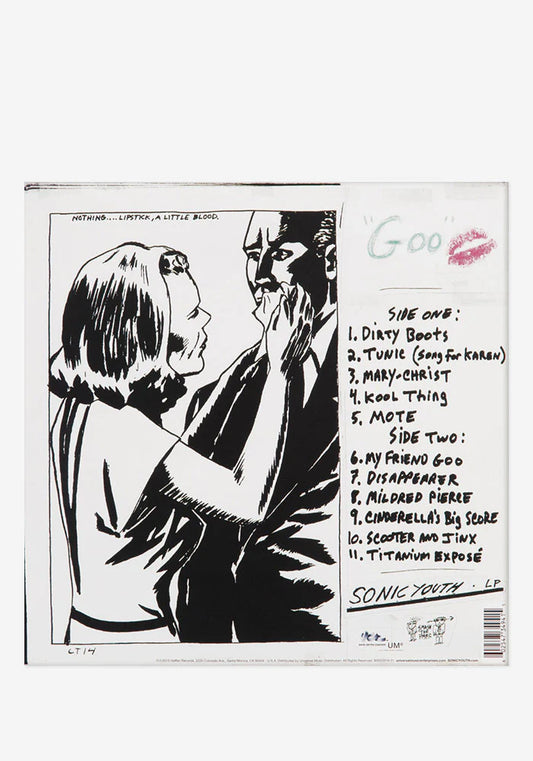 NOTHING.... LIPSTICK, A LITTLE BLOOD.
"Goo"
SIDE ONE:
1. DIRTY BOOTS
2. TUNIC (SONG FOR KAREN)
3. MARY-CHRIST
4. KOOL THING
5. MOTE
SIDE TWO:
6. MY FRIEND GOO
7. DISAPPEARER
8. MILDRED PIERCE
9. CINDERELLA'S BIG SCORE
10. SCOOTER AND JINX
11. TITANIUM EXPOSÉ
SONIC YOUTH · LP